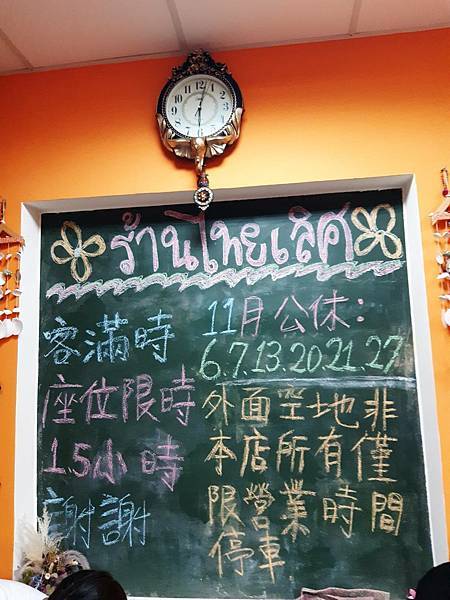 ร้านไทยเลิศ
客滿時
座位限時
1.5小時
謝謝
11月公休:
6.7.13.20.21.27
外面空地非
本店所有僅
限營業時間
停車